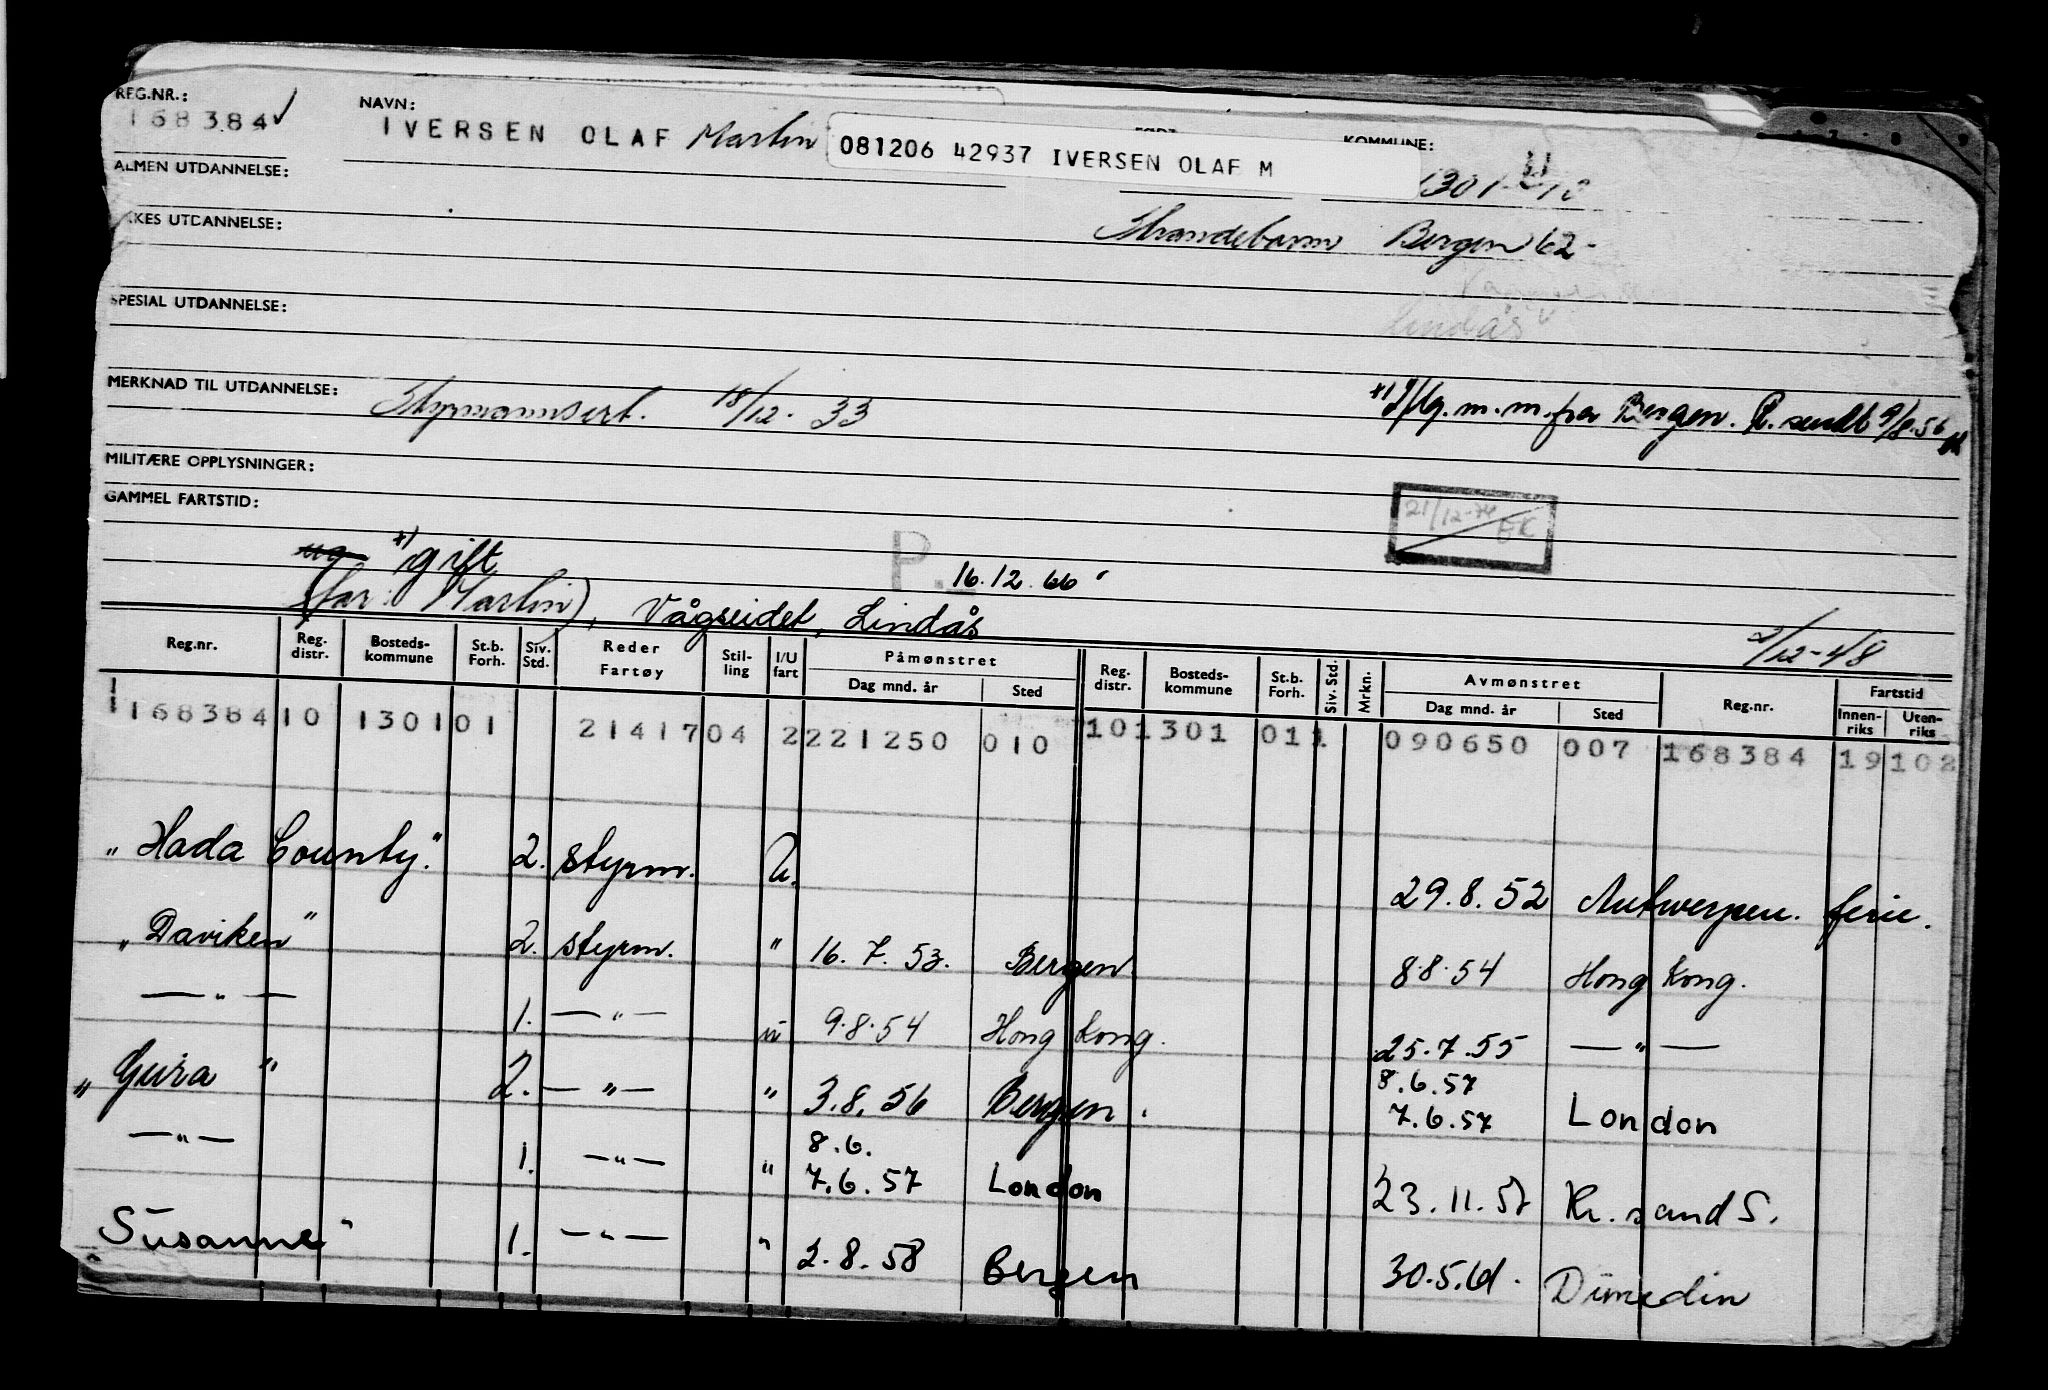 REG.NR.: NAVN: KOMMUNE:
168384 ✓ IVERSEN OLAF Martin 081206 42937 IVERSEN OLAF M 1301
ALMEN UTDANNELSE:
YRKES UTDANNELSE: Strandebarm Bergen 62-
SPESIAL UTDANNELSE: Lindås
MERKNAD TIL UTDANNELSE: Styrmannsert. 18/12-33 x) Flg. m.m. fra Bergen. R. sendt 9/8-56
MILITÆRE OPPLYSNINGER:
GAMMEL FARTSTID: 21/12-74 EK
ug x) gift P. 16.12.66
(far: Martin), Vågseidet, Lindås 2/12-48
Reg.nr. Reg. distr. Bosteds-kommune St.b. Forh. Siv. Std. Reder Fartøy Stil-ling I/U fart Påmønstret Dag mnd. år Sted Reg. distr. Bosteds-kommune St.b. Forh. Siv. Std. Mrkn. Avmønstret Dag mnd. år Sted Reg.nr. Fartstid Innen-riks Uten-riks
168384 10 1301 01 21417 04 2 221250 010 10 1301 01 1 090650 007 168384 19 102
"Hada County" 2. styrm. U. 29.8.52 Antwerpen. ferie.
"Daviken" 2. styrm. " 16.7.53. Bergen 8.8.54 Hong Kong.
—"— 1. —"— u 9.8.54 Hong Kong. 25.7.55 —"—
"Gura" 2. —"— " 3.8.56 Bergen. 8.6.57 7.6.57 London
—"— 1. —"— " 8.6. 7.6.57 London 23.11.57 Kr. sand S.
Susanne" 1. —"— " 2.8.58 Bergen 30.5.61. Dunedin